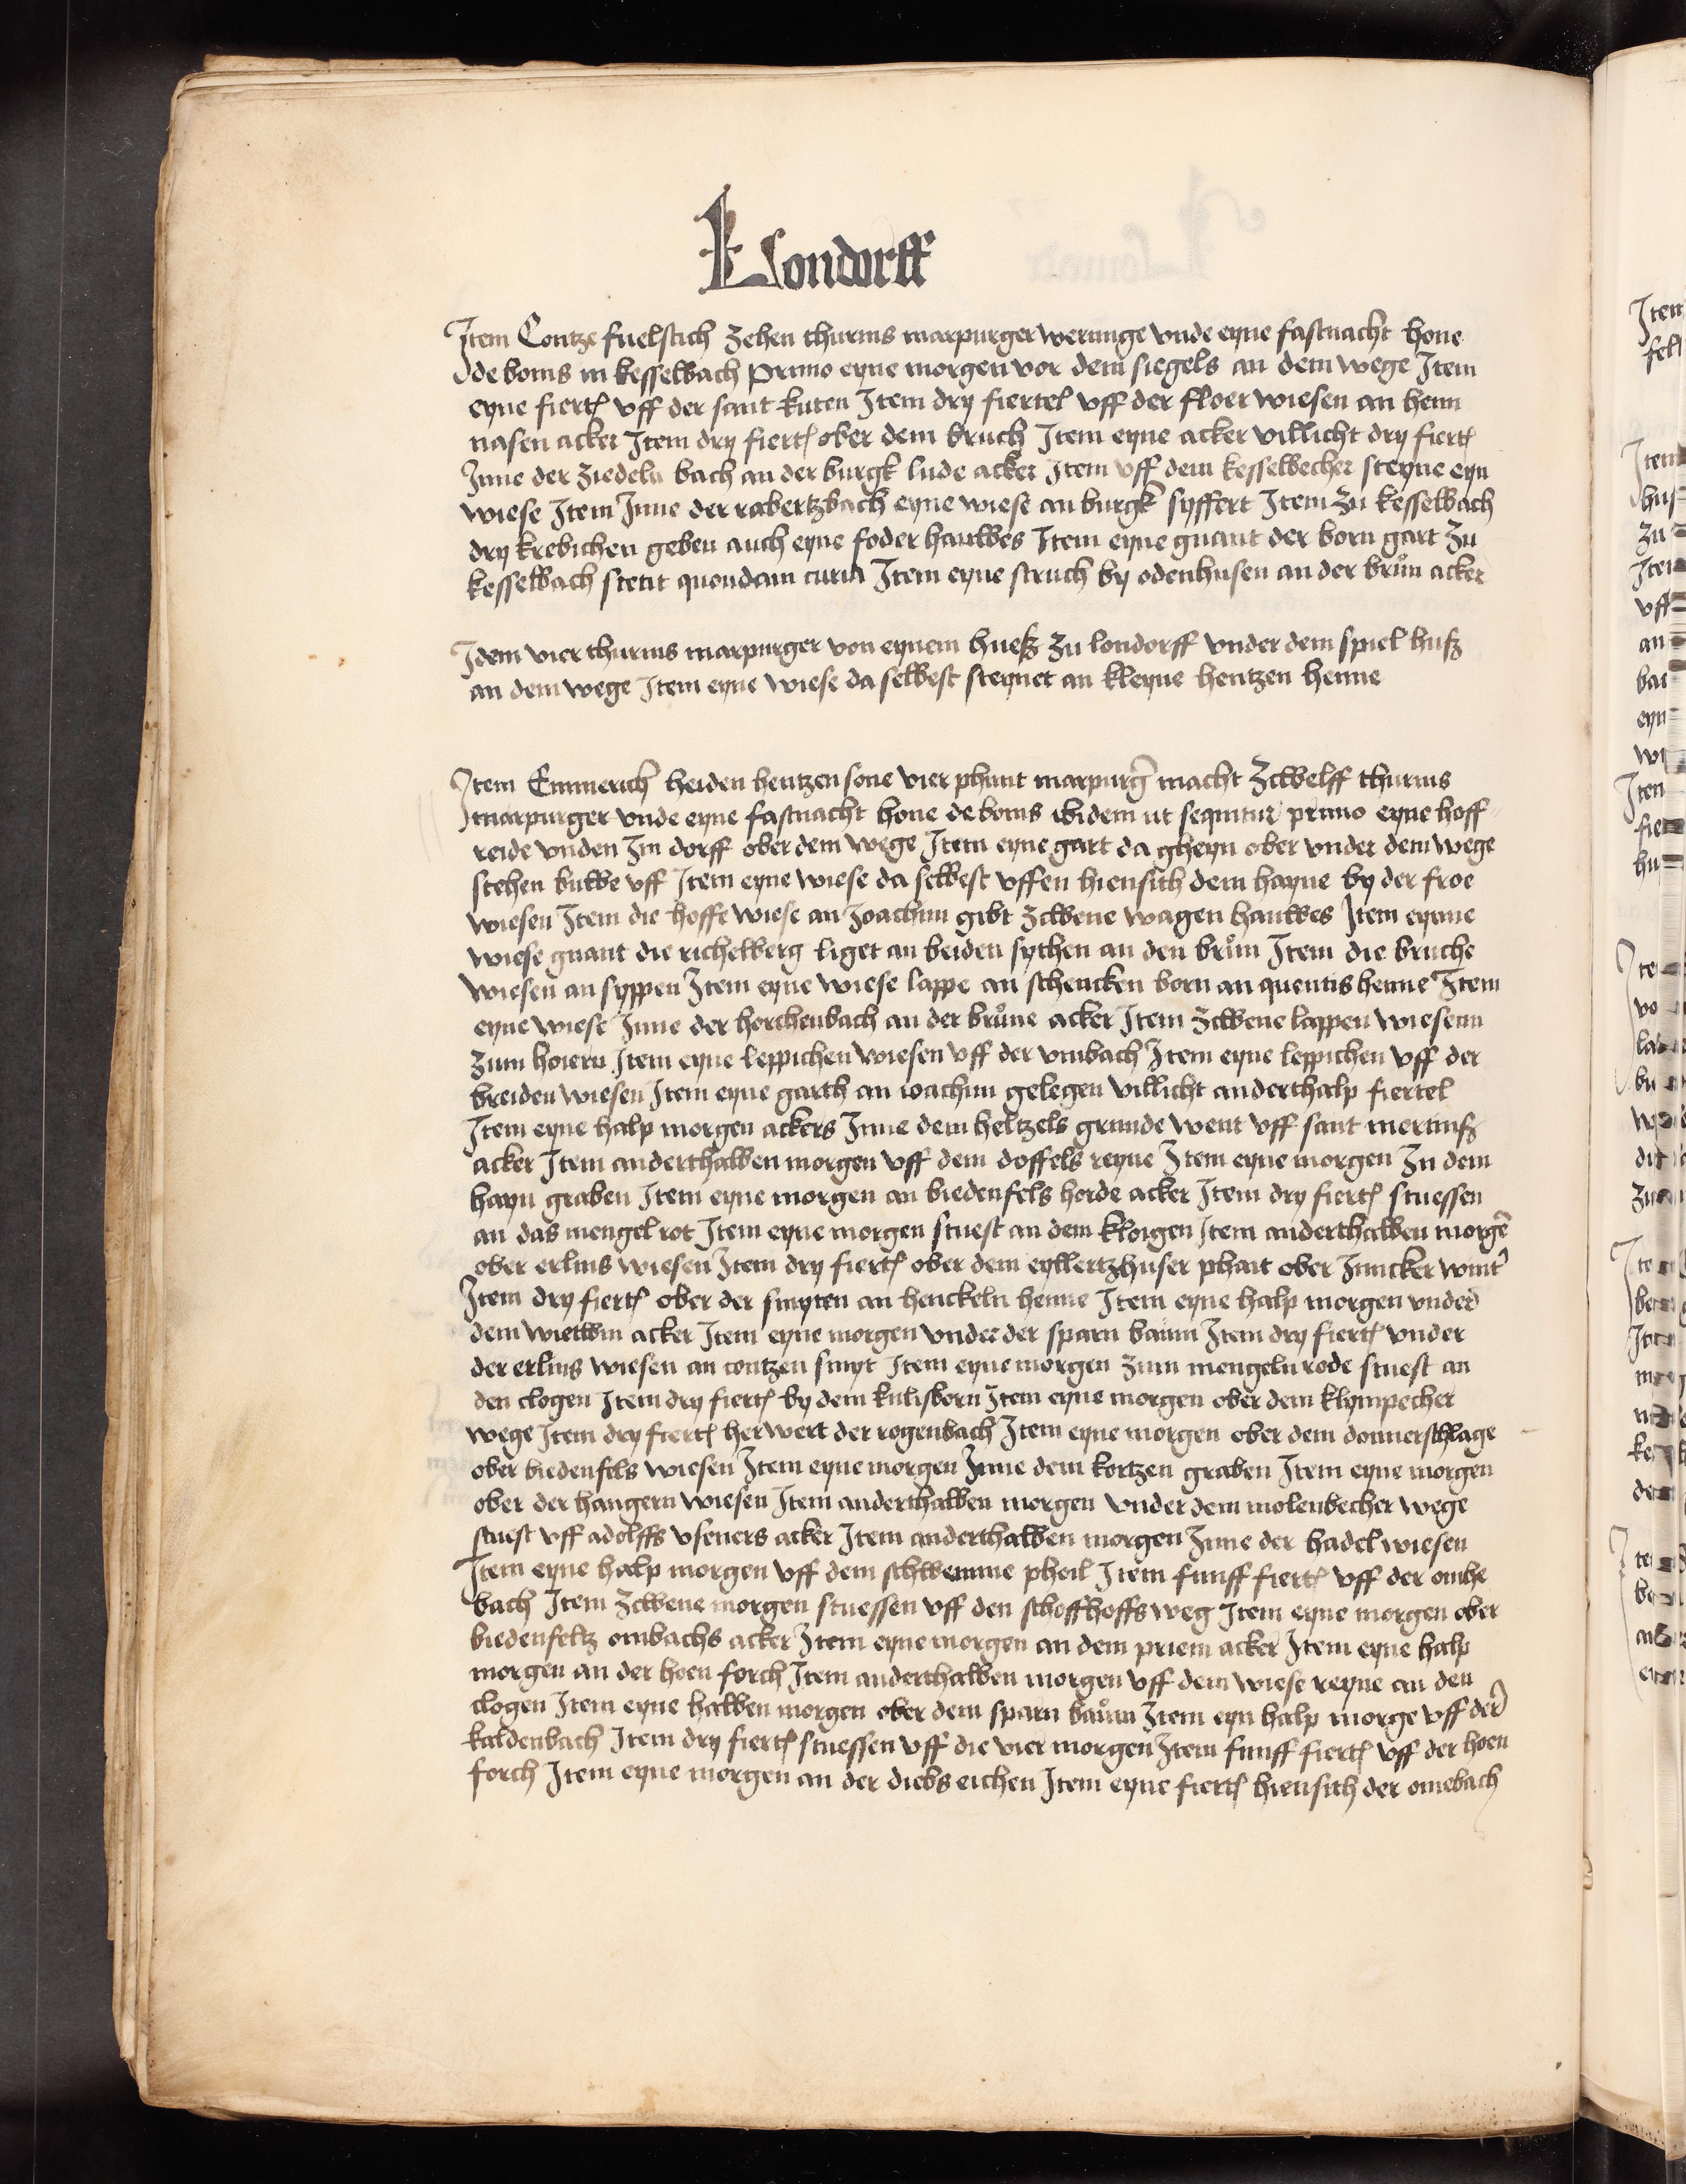 Londorff
Item Contze fuelstich zehen thurnis marpurger werunge vnde eyne fastnacht hone
de bonis in kesselbach primo eyne morgen vor dem siegels an dem wege Item
eyne fiert vff der sant kuten Item dry fiertel vff der floer wiesen an henn
nasen acker Item dry fiert ober dem bruch Item eyne acker villicht dry fiert
Inne der ziedeln bach an der burgk lude acker Item vff dem kesselbecher steyne eyn
wiese Item Inne der rabertzbach eyne wiese an burgk syffert Item zu kesselbach
dry krebichen geben auch eyne foder hauwes Item eyne gnant der born gart zu
kesselbach stetit quondam curia Item eyne struch by odenhusen an der brůn acker
Idem vier thurnis marpurger von eynem hueß zu londorff vnder dem spiel huß
an dem wege Item eyne wiese da selbest steynet an kleyne hentzen henne
Item Emmerich heiden hentzen sone vier phunt marpurg macht zcwelff thurnis
marpurger vnde eyne fastnacht hone de bonis ibidem ut sequitur primo eyne hoff
reide vnden Im dorff ober dem wege Item eyne gart da gheyn ober vnder dem wege
stehen buwe vff Item eyne wiese da selbest vffen hiensith dem hayne by der froe
wiesen Item die hoffe wiese an Joachim gibt zcwene wagen hauwes Item eynne
wiese gnant die richelberg liget an beiden sythen an den brům Item die bruche
wiesen an syppen Item eyne wiese lappe an schencken born an quentis henne Item
eyne wiese Inne der horchenbach an der brůne acker Item zcwene lappen wiesenn
zum hoiern Item eyne leppichen wiesen vff der vmbach Item eyne leppichen vff der
breiden wiesen Item eyne garth an ioachim gelegen villicht anderthalp fiertel
Item eyne halp morgen ackers Inne dem heltzels grunde went vff sant mertinß
acker Item anderthalben morgen vff dem doffels reyne Item eyne morgen zu dem
hayn graben Item eyne morgen an biedenfels horde acker Item dry fiert stuessen
an das mengel rot Item eyne morgen stuest an dem kloigen Item anderthalben morgē
ober erlins wiesen Item dry fiert ober dem eyllertzhuser phait ober Juncker wint
Item dry fiert ober der smyten an henckeln henne Item eyne halp morgen vnder
dem wietwin acker Item eyne morgen vnder der sparn baum Item dry fiert vnder
der erlins wiesen an contzen smyt Item eyne morgen zum mengeln rode stuest an
den clogen Item dry fiert by dem kulisborn Item eyne morgen ober dem klympecher
wege Item dry fiert her wert der rogenbach Item eyne morgen ober dem donnerschlage
ober biedenfels wiesen Item eyne morgen Inne dem kortzen graben Item eyne morgen
ober der hangern wiesen Item anderthalben morgen vnder dem molenbecher wege
stuest vff adolffs vseners acker Item anderthalben morgen Inne der hadel wiesen
Item eyne halp morgen vff dem schwemme pheil Item funff fiert vff der omhe
bach Item zcwene morgen stuessen vff den schoffhoffs weg Item eyne morgen ober
biedenfeltz ombachs acker Item eyne morgen an dem priem acker Item eyne halp
morgen an der hoen forch Item anderthalben morgen vff dem wiese reyne an den
clogen Item eyne halben morgen ober dem sparn baům Item eyn halp morge vff der
kaldenbach Item dry fiert stuessen vff die vier morgen Item funff fiert vff der hoen
forch Item eyne morgen an der diebs eichen Item eyne fiert hiensith der omebach